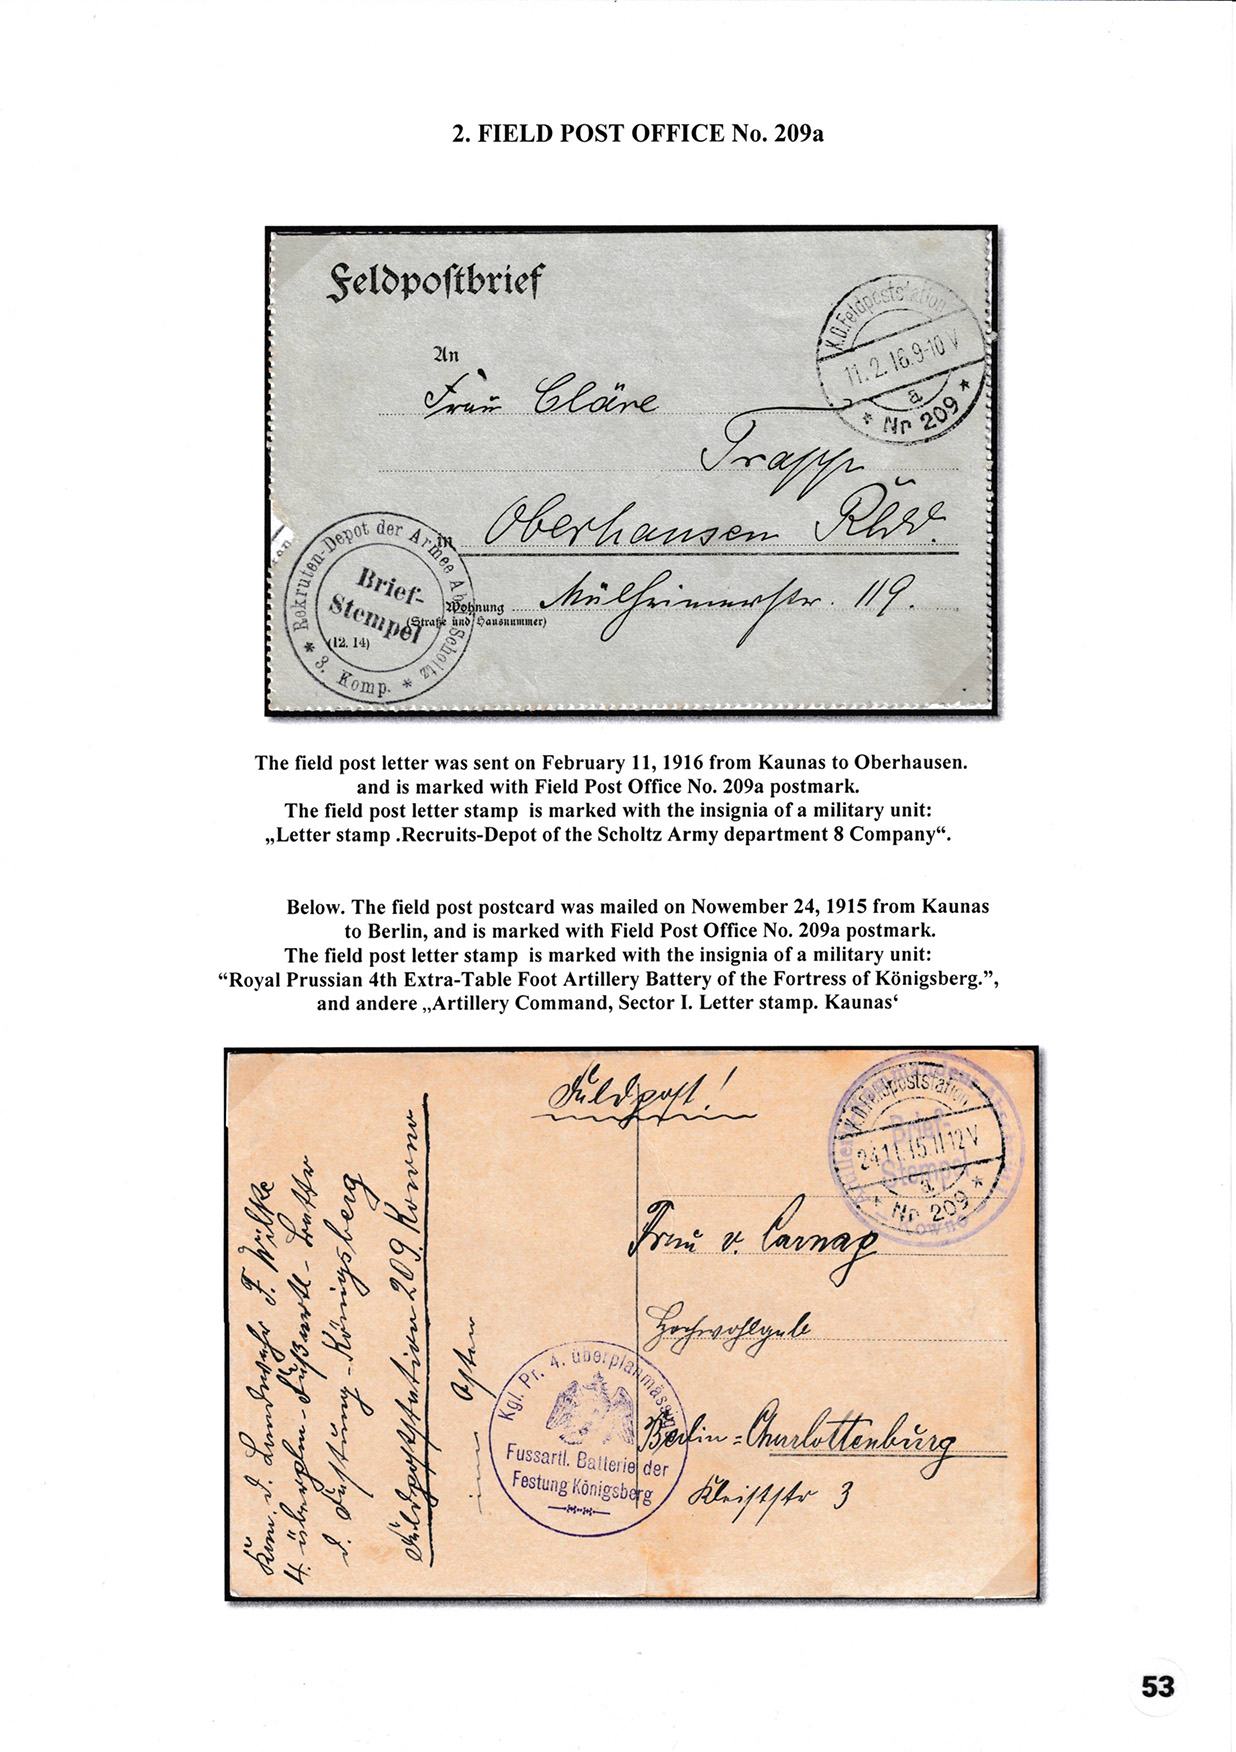 2. FIELD POST OFFICE No. 209a
Feldpostbrief
K.D.Feldpoststation
11.2.16.9-10 V
a
* Nr 209 *
An
Frau Cläre
Trapp
in Oberhausen Rhld.
Wohnung Mülheimerstr. 119.
(Straße und Hausnummer)
Rekruten-Depot der Armee Abt. Scholtz
* 3. Komp. *
Brief-
Stempel
(12. 14)
The field post letter was sent on February 11, 1916 from Kaunas to Oberhausen.
and is marked with Field Post Office No. 209a postmark.
The field post letter stamp is marked with the insignia of a military unit:
„Letter stamp .Recruits-Depot of the Scholtz Army department 8 Company“.
Below. The field post postcard was mailed on Nowember 24, 1915 from Kaunas
to Berlin, and is marked with Field Post Office No. 209a postmark.
The field post letter stamp is marked with the insignia of a military unit:
“Royal Prussian 4th Extra-Table Foot Artillery Battery of the Fortress of Königsberg.”,
and andere „Artillery Command, Sector I. Letter stamp. Kaunas‘
Feldpost!
K.D.Feldpoststation
24.11.15.11-12 V
a
* Nr 209 *
Brief-
Stempel
Kowno
Frau v. Carnap
Hochwohlgeb
Berlin=Charlottenburg
Kleiststr 3
d. Landwehr F. Wilke
4. überplm-Fußartl-Battr
d. Festung-Königsberg
Feldpoststation 209. Kowno
im Osten
Kgl. Pr. 4. überplanmässige
Fussartl. Batterie der
Festung Königsberg
53